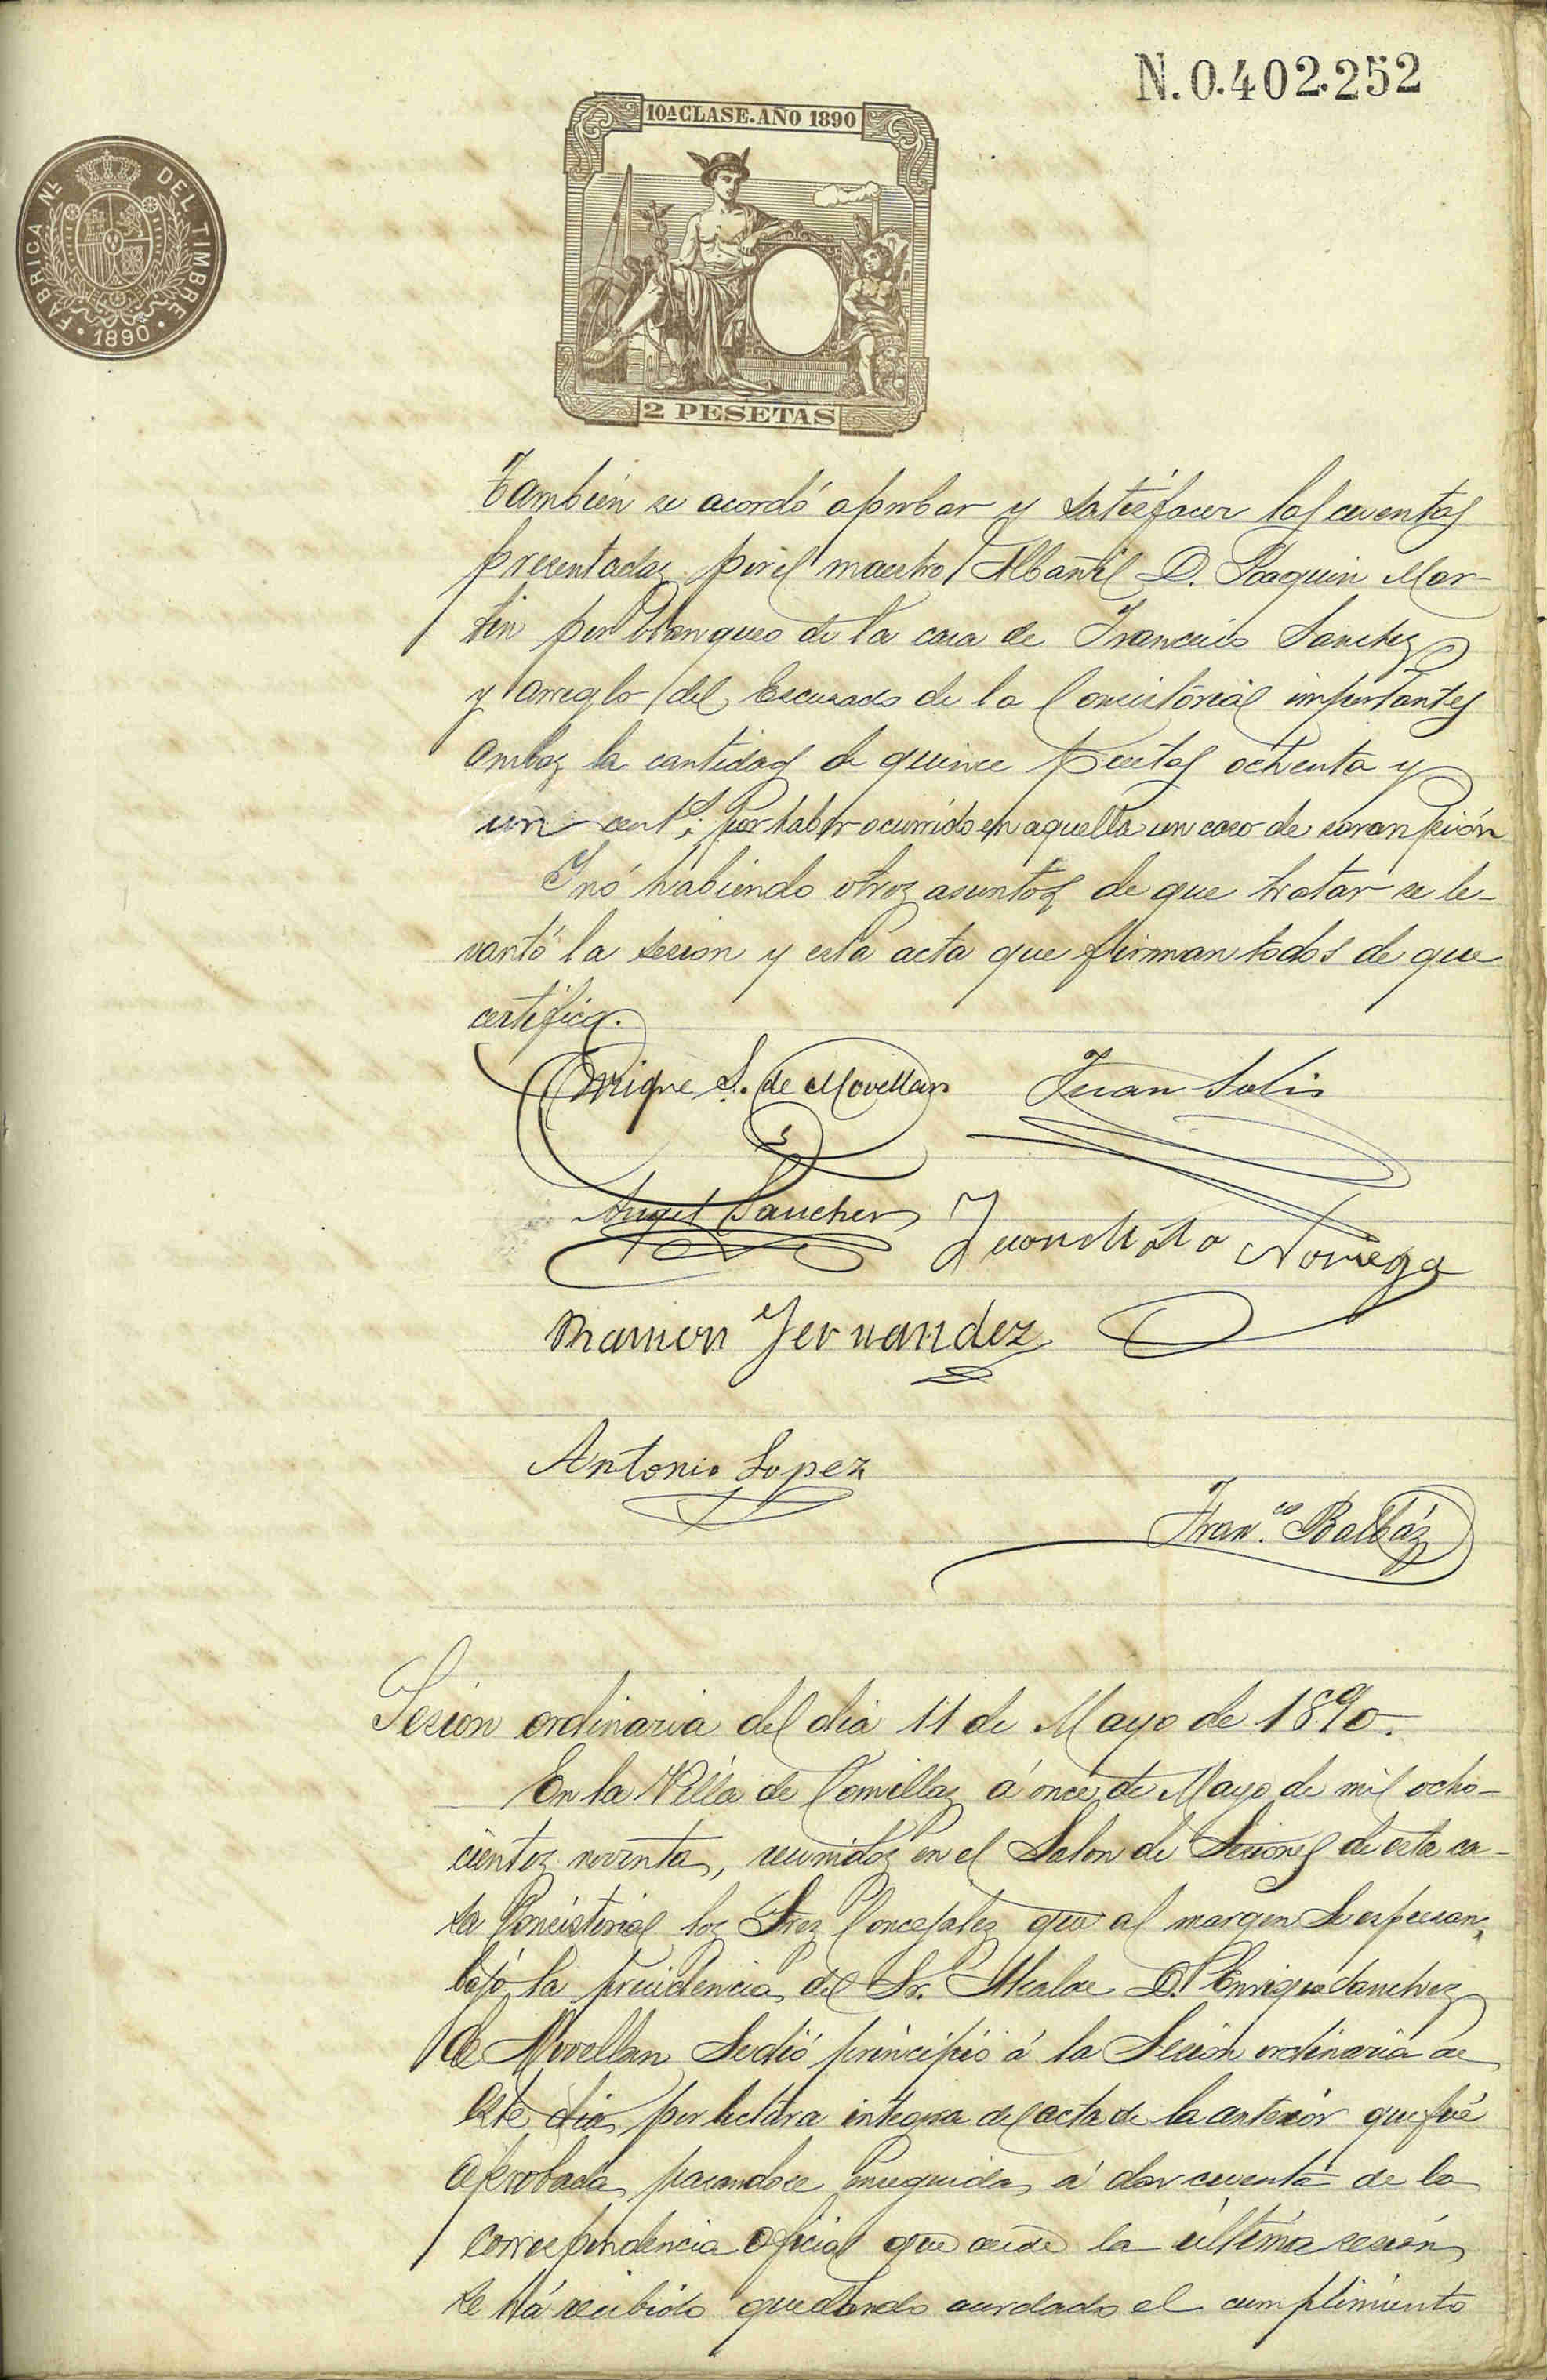 N.0.402.252
10ª CLASE. AÑO 1890
FABRICA Nᴸ DEL TIMBRE
· 1890 ·
2 PESETAS
Tambien se acordó aprobar y satisfacer las cuentas
presentadas por el maestro Albañil D. Joaquin Mar-
tin por blanqueo de la casa de Francisco Sanchez
y arreglo del Escusado de la Consistorial importantes
ambas la cantidad de quince pesetas ochenta y
un cent.s; por haber ocurrido en aquella un caso de sarampión
Y nó habiendo otros asuntos de que tratar se le-
vantó la sesion y esta acta que firman todos de que
certifico.
Enrique S. de Movellan Juan Solis
Angel Sanchez Juan Noriega
Ramon Fernandez
Antonio Lopez
Fran.co Balbáz
Sesion ordinaria del dia 11 de Mayo de 1890.
En la Villa de Comillas á once de Mayo de mil ocho-
cientos noventa, reunidos en el Salon de Sesiones de esta ca-
sa Consistorial los Sres Concejales que al margen se expresan,
bajo la presidencia del Sr. Alcalde D. Enrique Sanchez
de Movellan se dió principio á la Sesión ordinaria de
este dia por lectura integra del acta de la anterior que fué
aprobada, pasandose enseguida á dar cuenta de la
correspondencia oficial que desde la última sesión
se há recibido quedando acordado el cumplimiento